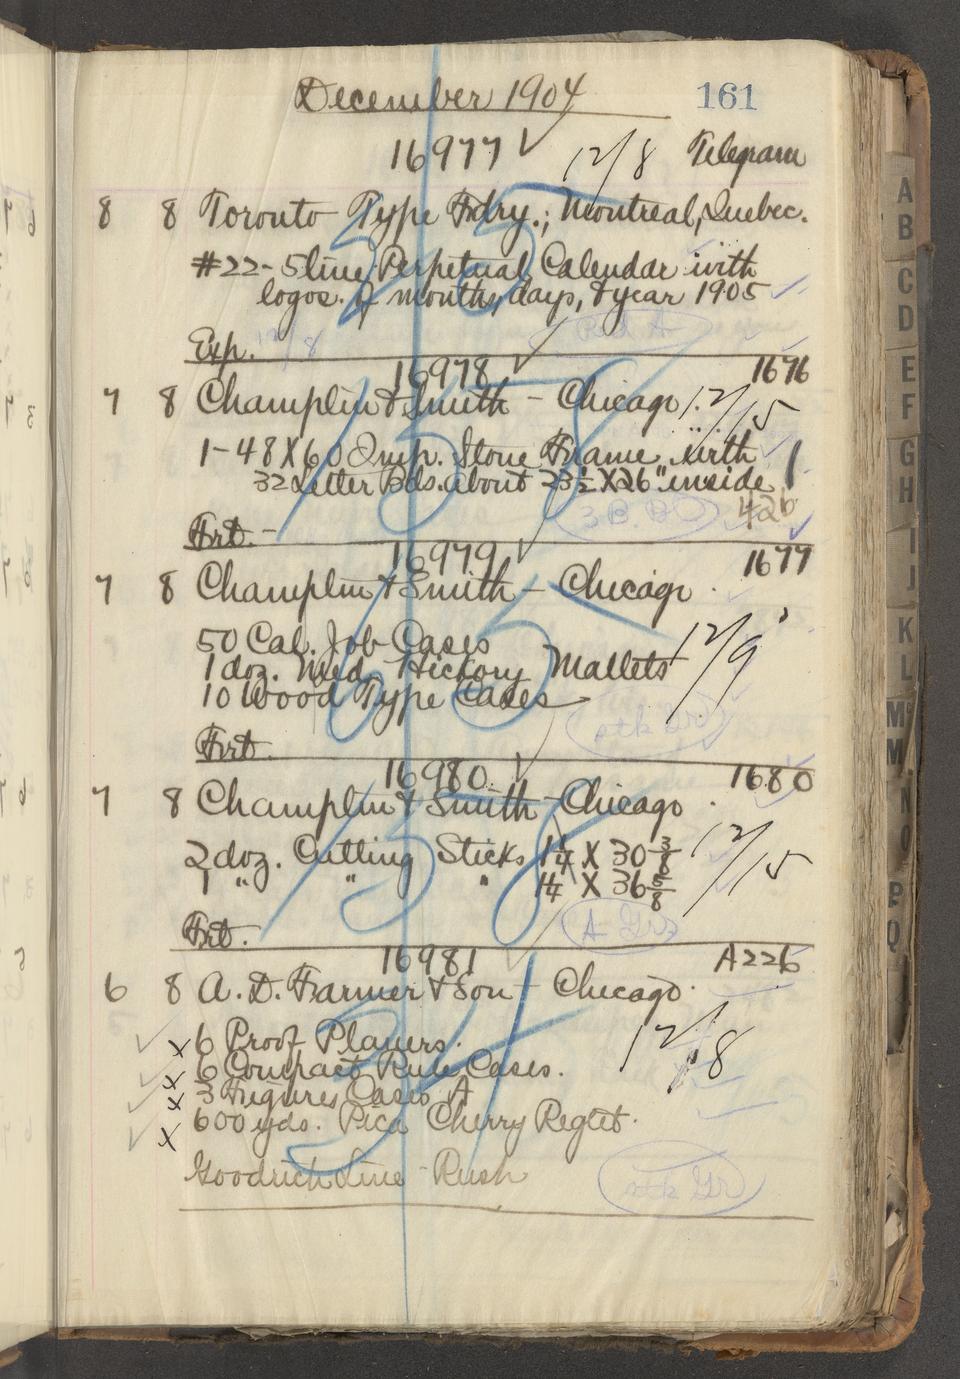 December 1904 161
16977 12/8 Telegram
8 8 Toronto Type Fdry.; Montreal, Quebec.
#22 - 5 line Perpetual Calendar with
logos. of months, days, & year 1905
Exp. 12/8
16978 1676
7 8 Champlin & Smith - Chicago 12/15
1 - 48 X 60 Imp. Stone Frame with 1
32 Letter Bds. about 23½ X 26" inside
426
Frt. -
16979 1677
7 8 Champlin & Smith - Chicago
50 Cal. Job Cases 12/9
1 doz. Med. Hickory Mallets
10 Wood Type Cases
stk Gr
Frt.
16980 1680
7 8 Champlin & Smith - Chicago
2 doz. Cutting Sticks 1¼ X 30 3/8 12/15
1 " " " 1¼ X 36 5/8
A Gr
Frt.
16981 A226
6 8 A. D. Farmer & Son - Chicago
x 6 Proof Planers. 12/8
x 6 Compact Rule Cases.
x 3 Figures Cases A
x 600 yds. Pica Cherry Reglet.
Goodrich Line - Rush
stk Gr
A
B
C
D
E
F
G
H
I
J
K
L
M
N
O
P
Q